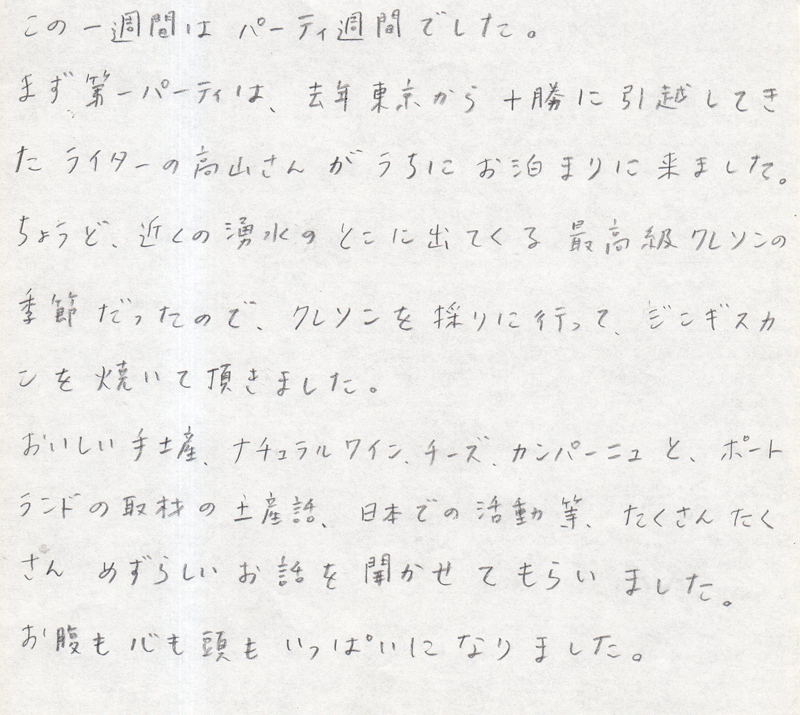 この一週間は パーティ週間でした。
まず、第一パーティは、去年東京から十勝に引越してき
た ライターの高山さんが うちに お泊まりに来ました。
ちょうど、近くの湧水のとこに出てくる 最高級クレソンの
季節だったので、クレソンを採りに行って、ジンギスカ
ンを焼いて頂きました。
おいしい手土産、ナチュラルワイン、チーズ、カンパーニュと、ポート
ランドの取材の土産話、日本での活動等、たくさんたく
さん めずらしいお話を聞かせてもらいました。
お腹も心も頭もいっぱいになりました。